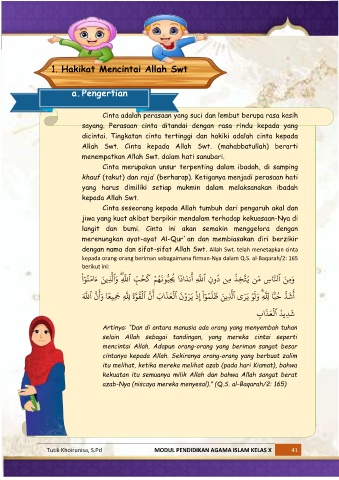 1. Hakikat Mencintai Allah Swt
a. Pengertian
Cinta adalah perasaan yang suci dan lembut berupa rasa kasih
sayang. Perasaan cinta ditandai dengan rasa rindu kepada yang
dicintai. Tingkatan cinta tertinggi dan hakiki adalah cinta kepada
Allah Swt. Cinta kepada Allah Swt. (mahabbatullah) berarti
menempatkan Allah Swt. dalam hati sanubari.
Cinta merupakan unsur terpenting dalam ibadah, di samping
khauf (takut) dan raja' (berharap). Ketiganya menjadi perasaan hati
yang harus dimiliki setiap mukmin dalam melaksanakan ibadah
kepada Allah Swt.
Cinta seseorang kepada Allah tumbuh dari pengaruh akal dan
jiwa yang kuat akibat berpikir mendalam terhadap kekuasaan-Nya di
langit dan bumi. Cinta ini akan semakin menggelora dengan
merenungkan ayat-ayat Al-Qur'an dan membiasakan diri berzikir
dengan nama dan sifat-sifat Allah Swt. Allah Swt. telah menetapkan cinta
kepada orang-orang beriman sebagaimana firman-Nya dalam Q.S. al-Baqarah/2: 165
berikut ini:
وَمِنَ ٱلنَّاسِ مَن يَتَّخِذُ مِن دُونِ ٱللَّهِ أَندَادًا يُحِبُّونَهُمْ كَحُبِّ ٱللَّهِ ۖ وَٱلَّذِينَ ءَامَنُوٓا۟
أَشَدُّ حُبًّا لِّلَّهِ ۗ وَلَوْ يَرَى ٱلَّذِينَ ظَلَمُوٓا۟ إِذْ يَرَوْنَ ٱلْعَذَابَ أَنَّ ٱلْقُوَّةَ لِلَّهِ جَمِيعًا وَأَنَّ ٱللَّهَ
شَدِيدُ ٱلْعَذَابِ
Artinya: "Dan di antara manusia ada orang yang menyembah tuhan
selain Allah sebagai tandingan, yang mereka cintai seperti
mencintai Allah. Adapun orang-orang yang beriman sangat besar
cintanya kepada Allah. Sekiranya orang-orang yang berbuat zalim
itu melihat, ketika mereka melihat azab (pada hari Kiamat), bahwa
kekuatan itu semuanya milik Allah dan bahwa Allah sangat berat
azab-Nya (niscaya mereka menyesal)." (Q.S. al-Baqarah/2: 165)
Tusik Khoirunisa, S.Pd MODUL PENDIDIKAN AGAMA ISLAM KELAS X 41